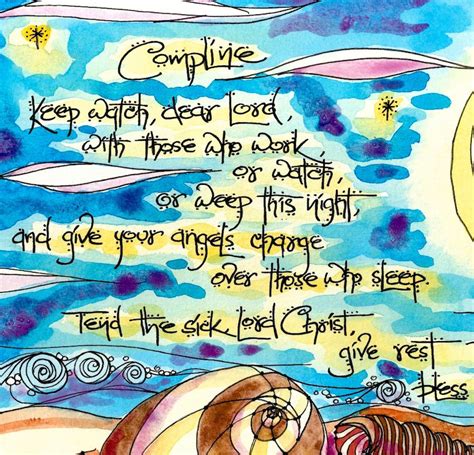 Compline
Keep watch, dear Lord,
with those who work,
or watch,
or weep this night,
and give your angels charge
over those who sleep.
Tend the sick, Lord Christ,
give rest
bless